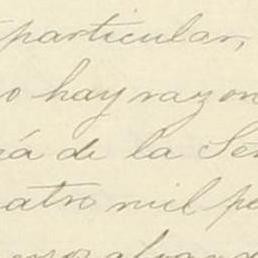 particular,
o hay razon
rá de la Se
atro mil pe